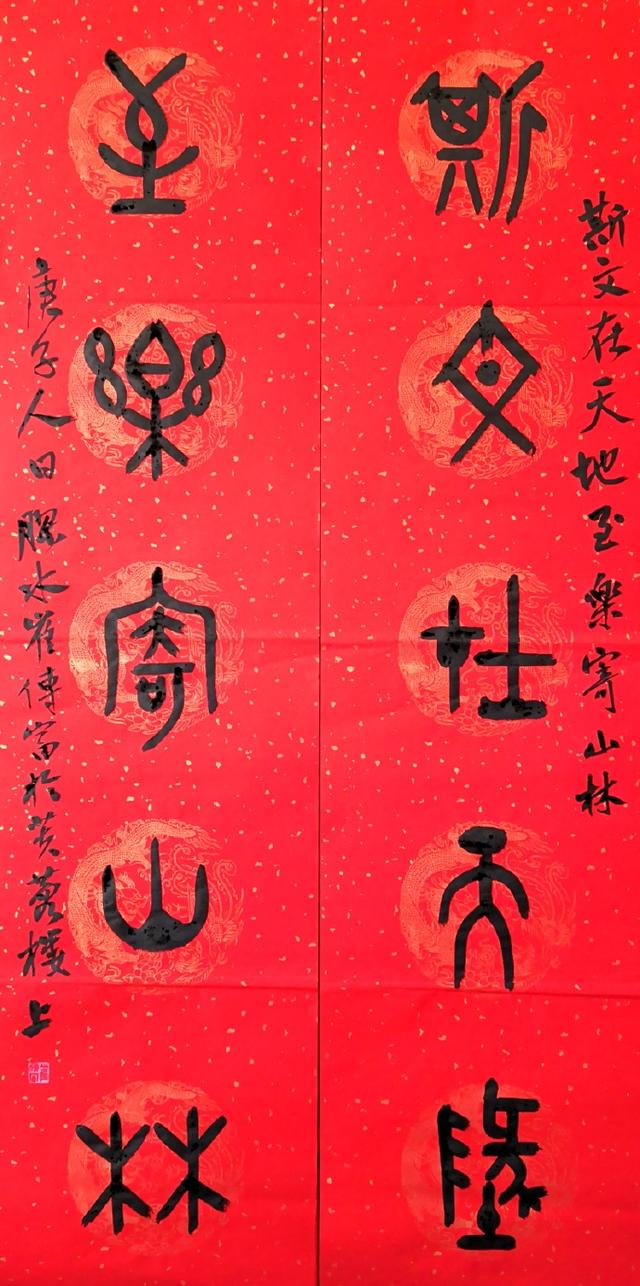 斯文在天地至樂寄山林
斯文在天地
至樂寄山林
庚子人日膠水崔傳富於芙蓉樓上